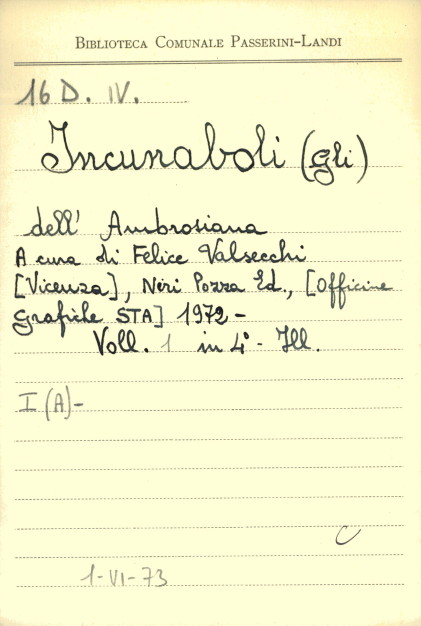 BIBLIOTECA COMUNALE PASSERINI-LANDI
16 D. IV.
Incunaboli (gli)
dell' Ambrosiana
A cura di Felice Valsecchi
[Vicenza], Neri Pozza Ed., [Officine
Grafiche STA] 1972 -
Voll. 1 in 4° - Ill.
I (A)-
C
1-VI-73